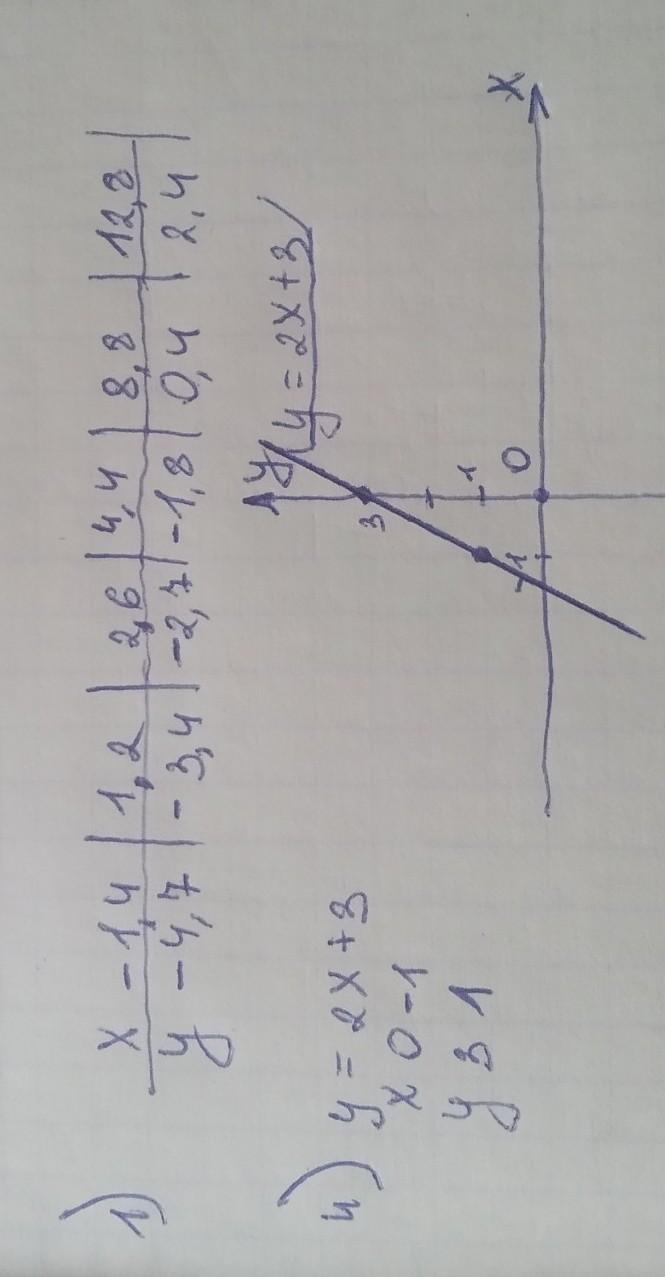 1) x -1,4 | 1,2 | 2,6 | 4,4 | 8,8 | 12,8 |
y -4,7 | -3,4 | -2,7 | -1,8 | 0,4 | 2,4 |
4) y = 2x+3
x 0 -1
y 3 1
y
y = 2x+3
3
1
0
-1
x